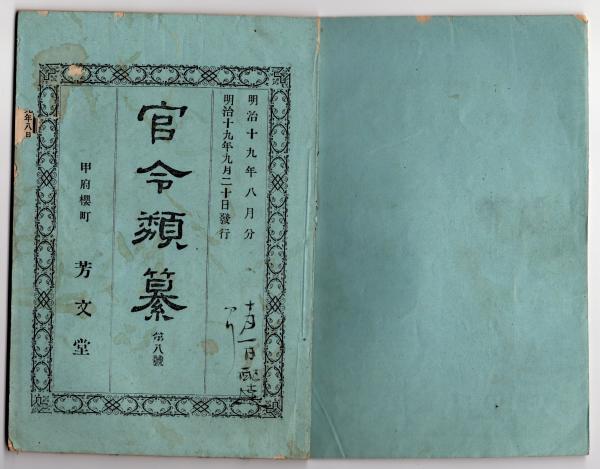 明治十九年八月分
明治十九年九月二十日發行
官令類纂 第八號
甲府櫻町 芳文堂
年八日